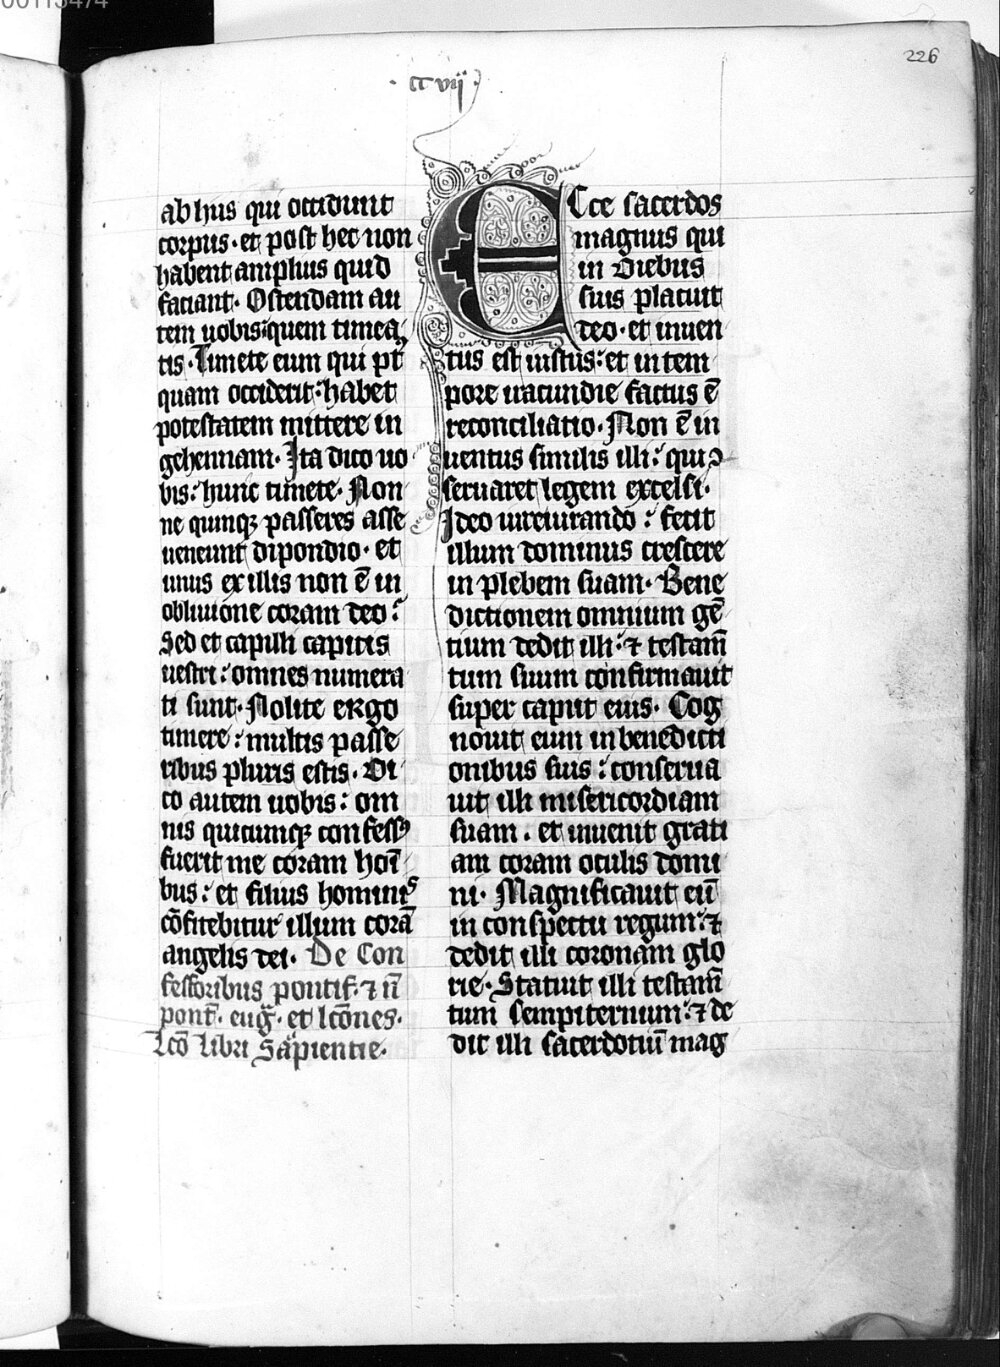 00113474
226
· cc vij ·
ab hiis qui occidunt
corpus · et post hec non
habent amplius quid
faciant · Ostendam au
tem uobis : quem timea
tis · Timete eum qui pt̄
quam occiderit : habet
potestatem mittere in
gehennam · Ita dico uo
bis : hunc timete · Non
ne quinqꝫ passeres asse
ueneunt dipondio · et
unus ex illis non ē in
obliuione coram deo :
Sed et capilli capitis
uestri : omnes numera
ti sunt · Nolite ergo
timere : multis passe
ribus pluris estis · Di
co autem uobis : om
nis quicunqꝫ confessꝰ
fuerit me coram hoī
bus : et filius hominis
cōfitebitur illum corā
angelis dei · De Con
fessoribus pontif · ⁊ nō
pont̄ · eug̅ · et lcōnes ·
Lcō libri Sapientie ·
Ecce sacerdos
magnus qui
in diebus
suis placuit
deo · et inuen
tus est iustus : et in tem
pore iracundie factus ē
reconciliatio · Non ē in
uentus similis illi : qui ↄ
seruaret legem excelsi ·
Ideo iureiurando : fecit
illum dominus crescere
in plebem suam · Bene
dictionem omnium gē
tium dedit illi : ⁊ testam̄
tum suum confirmauit
super caput eius · Cog
nouit eum in benedicti
onibus suis : conserua
uit illi misericordiam
suam · et inuenit grati
am coram oculis domi
ni · Magnificauit eū
in conspectu regum : ⁊
dedit illi coronam glo
rie · Statuit illi testam̄
tum sempiternum : ⁊ de
dit illi sacerdotiū mag